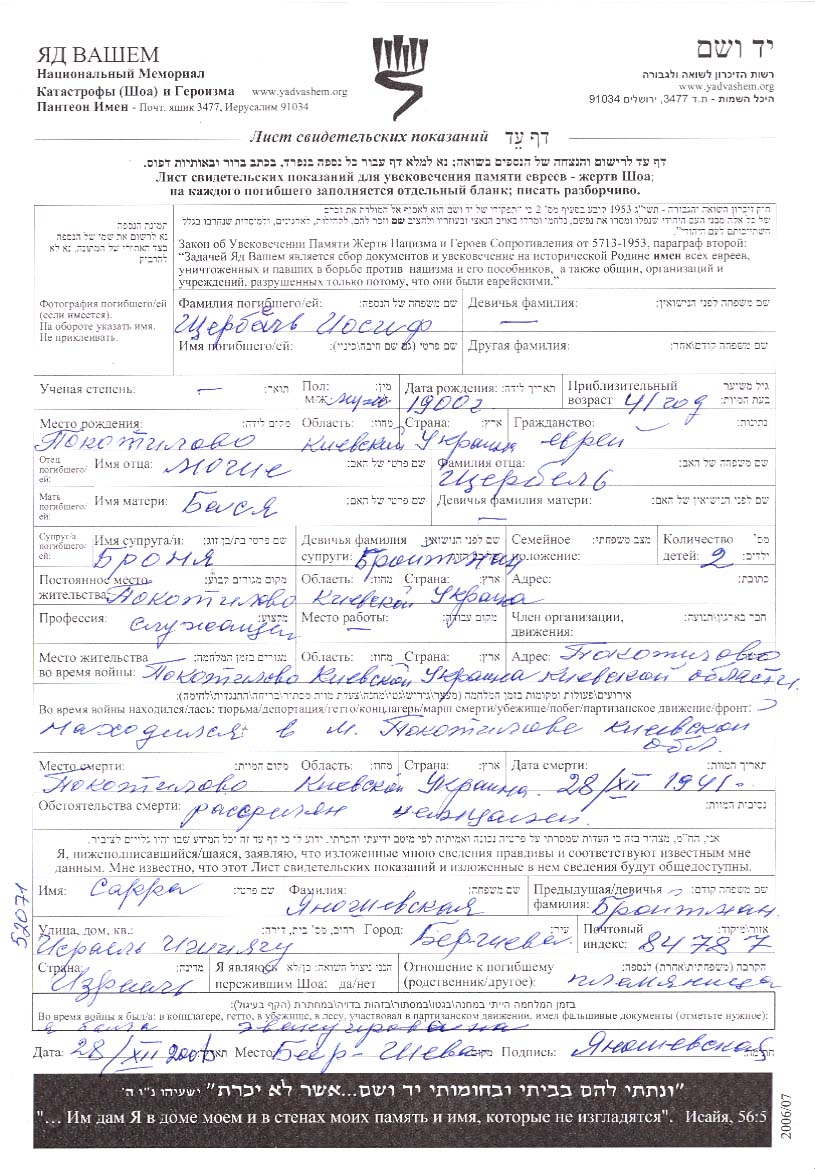 ЯД ВАШЕМ
Национальный Мемориал
Катастрофы (Шоа) и Героизма www.yadvashem.org
Пантеон Имен - Почт. ящик 3477, Иерусалим 91034
יד ושם
רשות הזיכרון לשואה ולגבורה
www.yadvashem.org
היכל השמות - ת.ד 3477, ירושלים 91034
Лист свидетельских показаний דף עֵד
דף עד לרישום והנצחה של הנספים בשואה; נא למלא דף עבור כל נספה בנפרד, בכתב ברור ובאותיות דפוס.
Лист свидетельских показаний для увековечения памяти евреев - жертв Шоа;
на каждого погибшего заполняется отдельный бланк; писать разборчиво.
תמונת הנספה
נא לרשום את שמו של הנספה
בצד האחורי של התמונה. נא לא
להדביק
חוק זיכרון השואה והגבורה - תשי"ג 1953 קובע בסעיף מס' 2 כי "תפקידו של יד ושם הוא לאסוף אל המולדת את זכרם
של כל אלה מבני העם היהודי שנפלו ומסרו את נפשם, נלחמו ומרדו באויב הנאצי ובעוזריו ולהציב שם וזכר להם, לקהילות, לארגונים, ולמוסדות שנחרבו בגלל
השתייכותם לעם היהודי".
Закон об Увековечении Памяти Жертв Нацизма и Героев Сопротивления от 5713-1953, параграф второй:
“Задачей Яд Вашем является сбор документов и увековечение на исторической Родине имен всех евреев,
уничтоженных и павших в борьбе против нацизма и его пособников, а также общин, организаций и
учреждений, разрушенных только потому, что они были еврейскими.”
Фотография погибшего/ей
(если имеется).
На обороте указать имя.
Не приклеивать.
Фамилия погибшего/ей: שם משפחה של הנספה: Девичья фамилия: שם משפחה לפני הנישואין:
Иосиф —
Имя погибшего/ей: שם פרטי (גם שם חיבה\כינוי): Другая фамилия: שם משפחה קודם\אחר:
Ученая степень: — תואר: Пол: מין: м/ж Дата рождения: תאריך לידה: 1900 г. Приблизительный возраст גיל משוער בעת המוות: 41 год
Место рождения: מקום לידה: Область: מחוז: Страна: ארץ: Гражданство: נתינות:
Покотилово Киевский Украина еврей
Отец погибшего/ей: Имя отца: שם פרטי של האב: Фамилия отца: שם משפחה של האב:
Щербель
Мать погибшего/ей: Имя матери: Бася שם פרטי של האם: Девичья фамилия матери: שם לפני הנישואין של האם: —
Супруг/а погибшего/ей: Имя супруга/и: שם פרטי בת/בן זוג: Девичья фамилия супруги: שם לפני הנישואין Семейное положение: מצב משפחתי: Количество детей: מס' ילדים:
Броня Бройтман 2
Постоянное место жительства: מקום מגורים קבוע: Область: מחוז: Страна: ארץ: Адрес: כתובת:
Покотилово Киевской Украина
Профессия: מקצוע: служащий Место работы: מקום עבודה: — Член организации, движения: חבר בארגון\תנועה:
Место жительства во время войны: מגורים בזמן המלחמה: Область: מחוז: Страна: ארץ: Адрес: Покотилово
Покотилово Киевской Украина Киевской области.
Во время войны находился/лась: тюрьма/депортация/гетто/концлагерь/марш смерти/убежище/побег/партизанское движение/фронт:
находился в м. Покотилове Киевской
обл.
Место смерти: מקום המוות: Область: מחוז: Страна: ארץ: Дата смерти: תאריך המוות:
Покотилово Киевской Украина. 28/XII 1941 г.
Обстоятельства смерти: расстрелян немцами נסיבות המוות:
אני, החת"מ, מצהיר בזה כי העדות שמסרתי על פרטיה נכונה ואמיתית לפי מיטב ידיעתי והכרתי. ידוע לי כי דף עד זה וכל המידע שבו יהיו גלויים לציבור.
Я, нижеподписавшийся/шаяся, заявляю, что изложенные мною сведения правдивы и соответствуют известным мне
данным. Мне известно, что этот Лист свидетельских показаний и изложенные в нем сведения будут общедоступны.
Имя: Сарра שם פרטי: Фамилия: שם משפחה: Яношевская Предыдущая/девичья фамилия: שם משפחה קודם: Бройтман.
52071
Улица, дом, кв.: רחוב, מס' בית, דירה: Город: עיר: Почтовый индекс: אזור/מיקוד: 84787
Страна: מדינה: Израиль Я являюсь пережившим Шоа: да/нет הנני ניצול השואה: כן/לא Отношение к погибшему (родственник/другое): הקרבה (משפחתית\אחרת) לנספה: племянница
בזמן המלחמה הייתי במחנה\בגטו\במסתור\בזהות בדויה\במחתרת (הקף בעיגול):
Во время войны я был/а: в концлагере, гетто, в убежище, в лесу, участвовал в партизанском движении, имел фальшивые документы (отметьте нужное):
я была эвакуирована
Дата: 28/XII תאריך: Место: Беер-Шева מקום: Подпись: Яношевская חתימה:
"ונתתי להם בביתי ובחומותי יד ושם...אשר לא יכרת" ישעיהו נ"ו ה'
"... Им дам Я в доме моем и в стенах моих память и имя, которые не изгладятся". Исайя, 56:5
2006/07